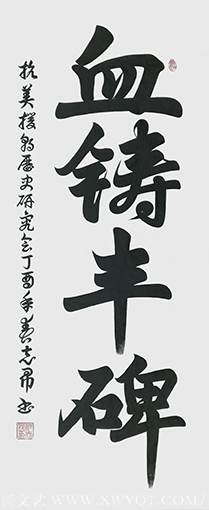 血铸丰碑
抗美援朝历史研究会丁酉年 志 书
文艺 WWW.XWYQT.COM